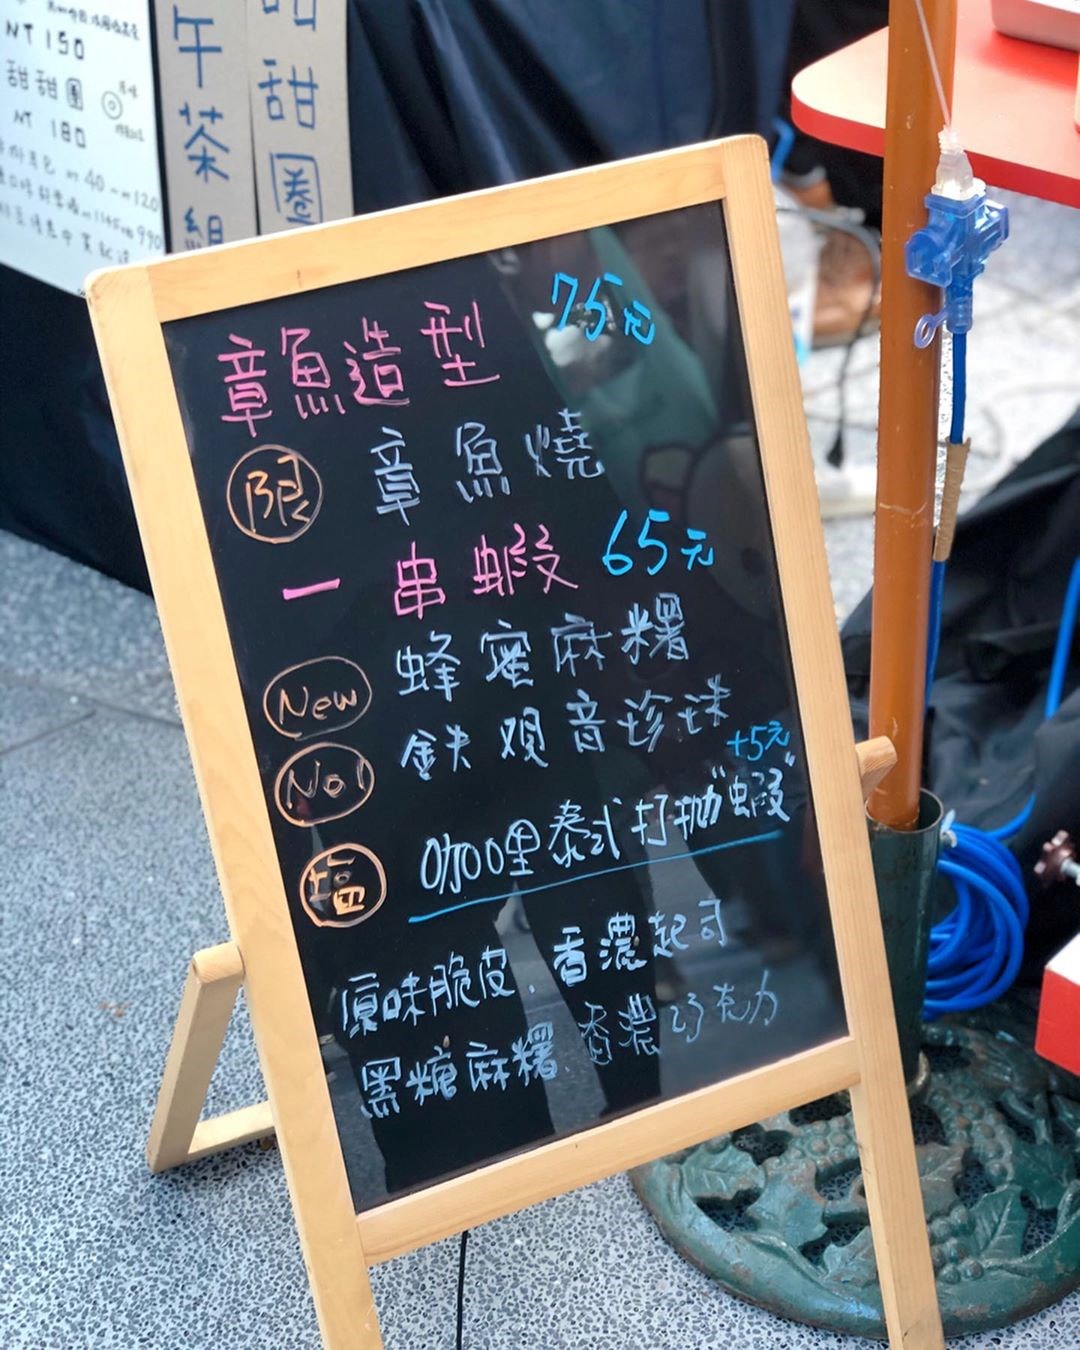 NT 150
甜甜圈
NT 180
午茶組
甜甜圈
章魚造型 75元
限 章魚燒
一串蝦 65元
New 蜂蜜麻糬
No1 鉄观音珍珠
+5元
塩 咖哩泰式打拋"蝦"
原味脆皮、香濃起司
黑糖麻糬、香濃巧克力